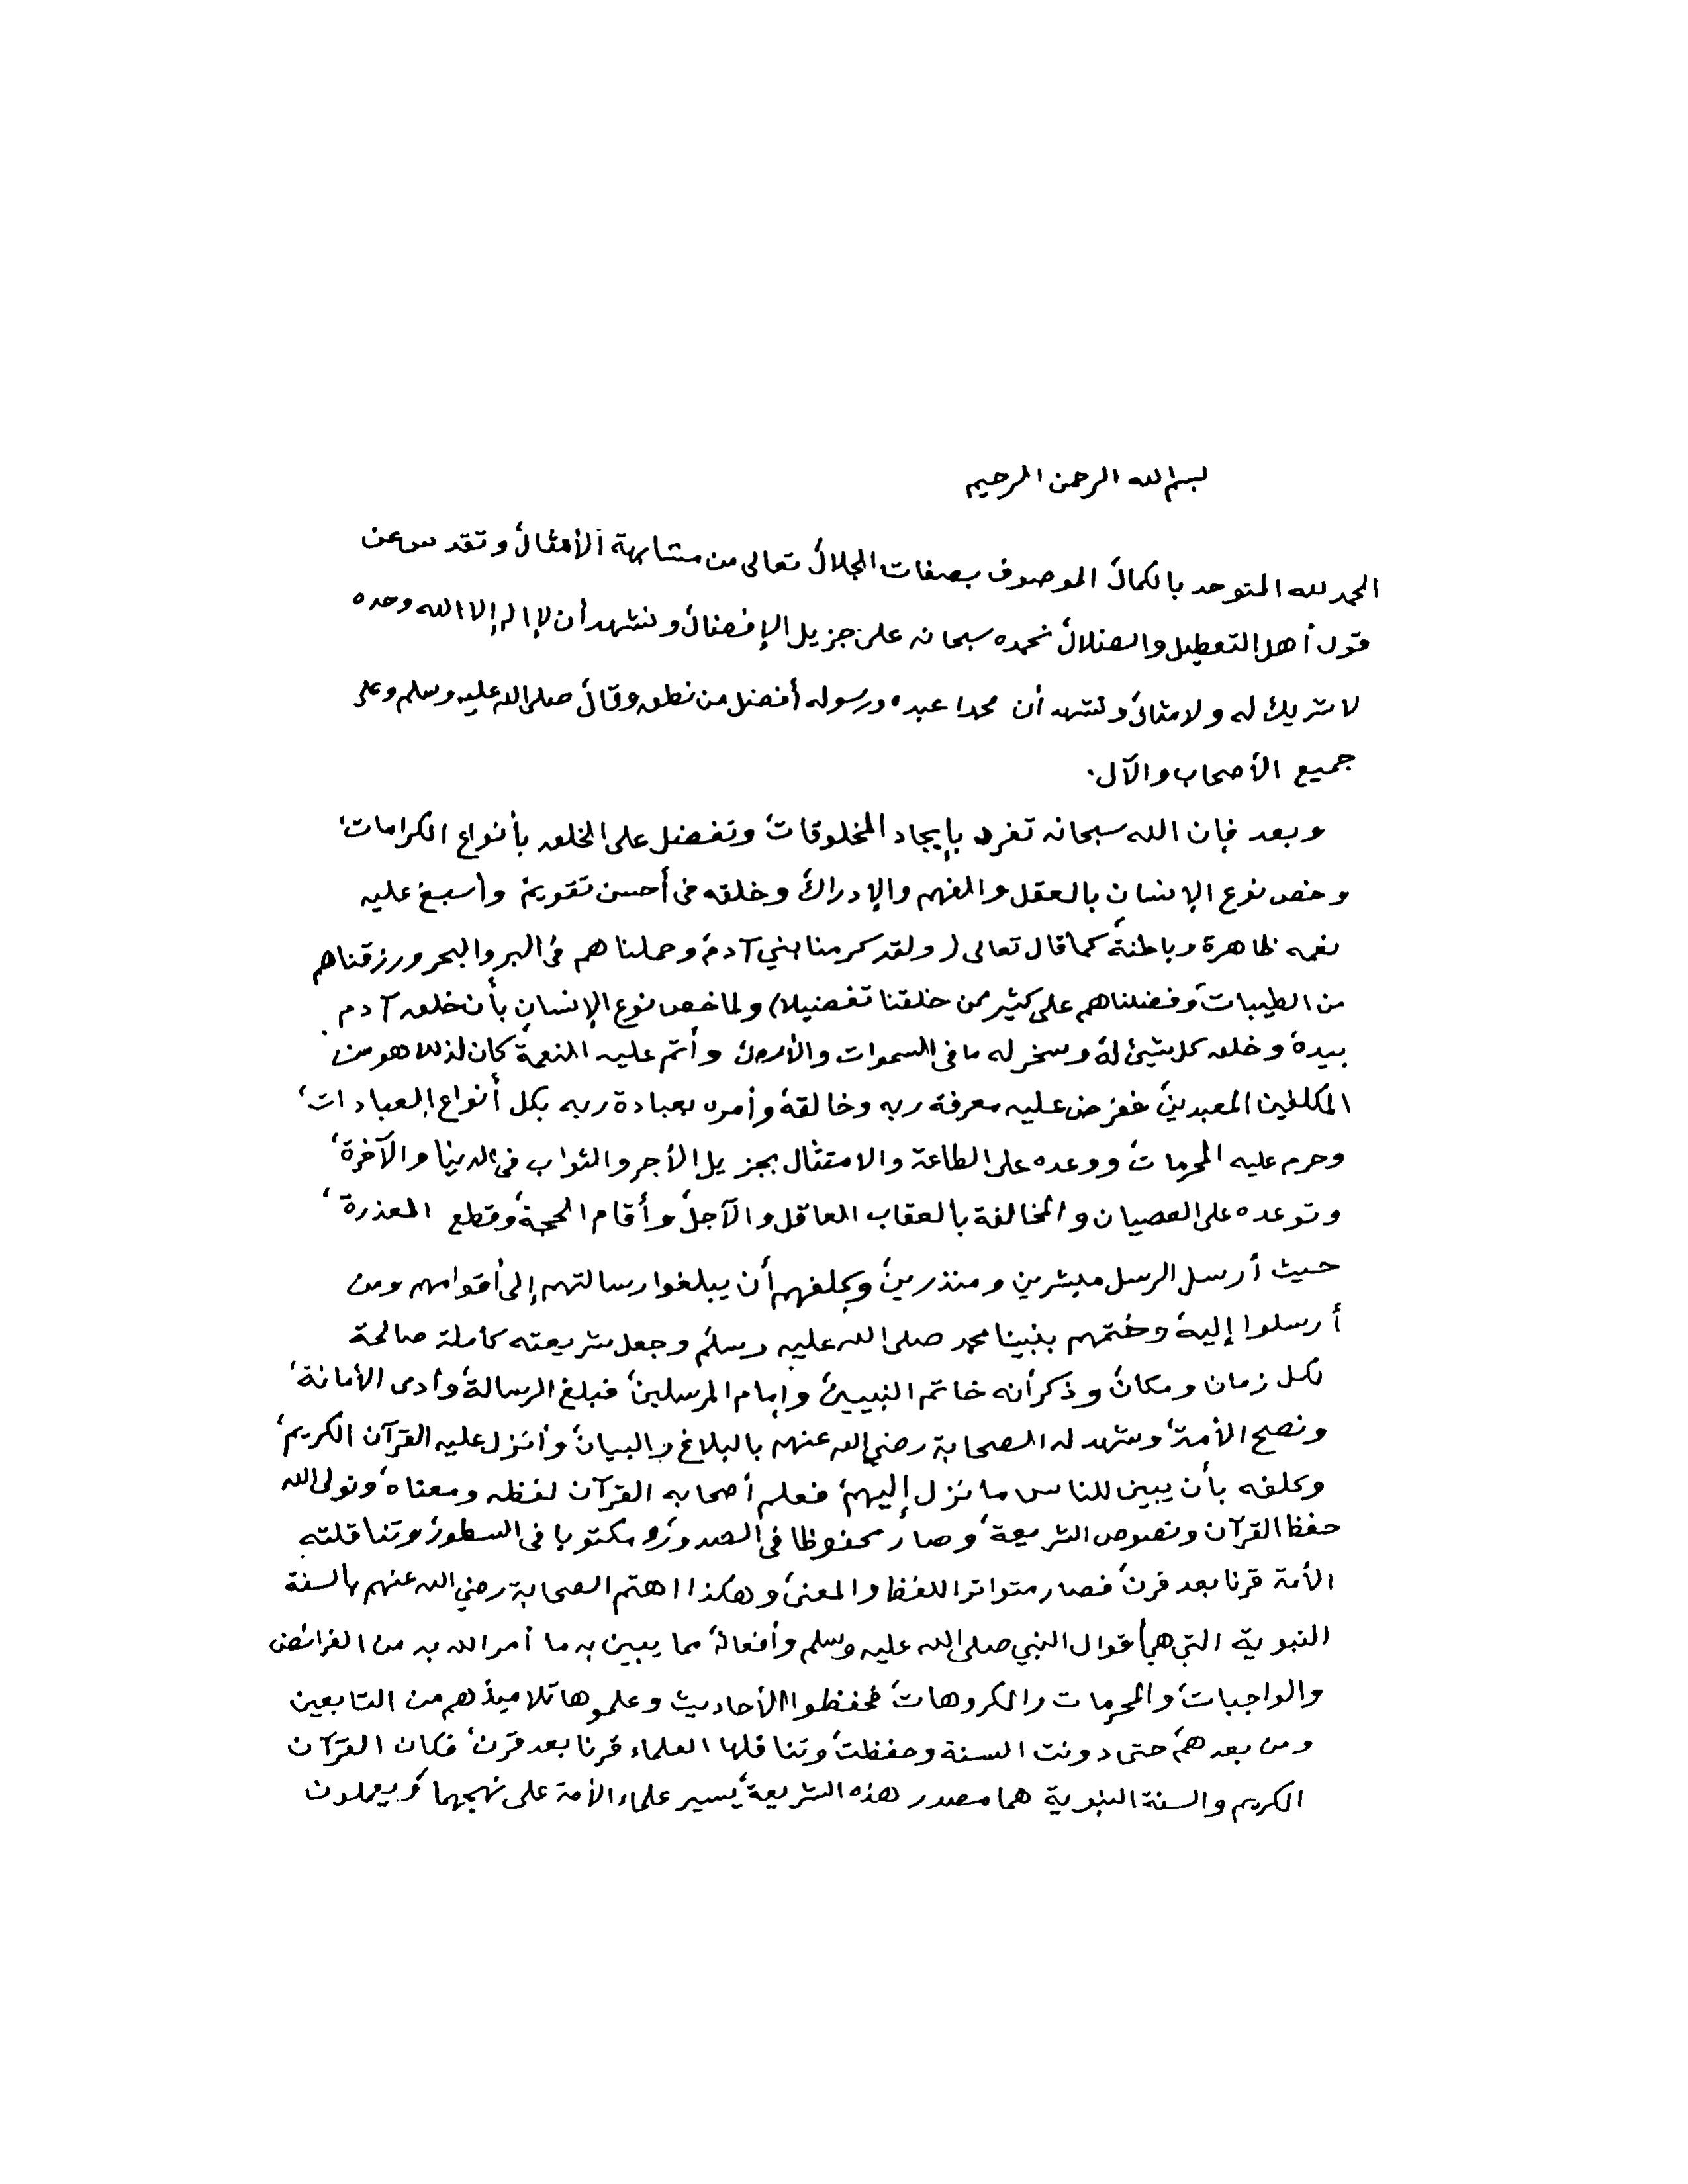 بسم الله الرحمن الرحيم
الحمد لله المتوحد بالكمال، الموصوف بصفات الجلال، تعالى من مشابهة الأمثال، وتقدس عن
قول أهل التعطيل والضلال، نحمده سبحانه على جزيل الإفضال، ونشهد أن لا إله إلا الله وحده
لا شريك له ولا مثال، ونشهد أن محمدا عبده ورسوله أفضل من نطق وقال، صلى الله عليه وسلم وعلى
جميع الأصحاب والآل.
وبعد فإن الله سبحانه تفرد بإيجاد المخلوقات، وتفضل على الخلق بأنواع الكرامات،
وخص نوع الإنسان بالعقل والفهم والإدراك، وخلقه في أحسن تقويم، وأسبغ عليه
نعمه ظاهرة وباطنة، كما قال تعالى (ولقد كرمنا بني آدم، وحملناهم في البر والبحر ورزقناهم
من الطيبات، وفضلناهم على كثير ممن خلقنا تفضيلا) ولما خص نوع الإنسان بأن خلق آدم
بيده، وخلق كل شيئ له، وسخر له ما في السموات والأرض، وأتم عليه النعمة، كان لذلك هو من
المكلفين المعبدين، ففرض عليه معرفة ربه وخالقه، وأمره بعبادة ربه بكل أنواع العبادات،
وحرم عليه المحرمات، ووعده على الطاعة والامتثال بجزيل الأجر والثواب في الدنيا والآخرة،
وتوعده على العصيان والمخالفة بالعقاب العاقل والآجل، وأقام الحجة، وقطع المعذرة،
حيث أرسل الرسل مبشرين ومنذرين، وكلفهم أن يبلغوا رسالتهم إلى أقوامهم ومن
أرسلوا إليه، وختمهم بنبينا محمد صلى الله عليه وسلم، وجعل شريعته كاملة صالحة
لكل زمان ومكان، وذكر أنه خاتم النبيين، وإمام المرسلين، فبلغ الرسالة، وأدى الأمانة،
ونصح الأمة، وشهد له الصحابة رضي الله عنهم بالبلاغ والبيان، وأنزل عليه القرآن الكريم،
وكلفه بأن يبين للناس ما نزل إليهم، فعلم أصحابه القرآن لفظه ومعناه، وتولى الله
حفظ القرآن ونصوص الشريعة، وصار محفوظا في الصدور، ومكتوبا في السطور، وتناقلته
الأمة قرنا بعد قرن، فصار متواتر اللفظ والمعنى، وهكذا اهتم الصحابة رضي الله عنهم بالسنة
النبوية التي هي أقوال النبي صلى الله عليه وسلم وأفعاله، مما يبين به ما أمر الله به من الفرائض
والواجبات، والمحرمات والمكروهات، فحفظوا الأحاديث وعلموها تلاميذهم من التابعين
ومن بعدهم، حتى دونت السنة وحفظت، وتناقلها العلماء قرنا بعد قرن، فكان القرآن
الكريم والسنة النبوية هما مصدر هذه الشريعة، يسير علماء الأمة على نهجهما، ويعملون